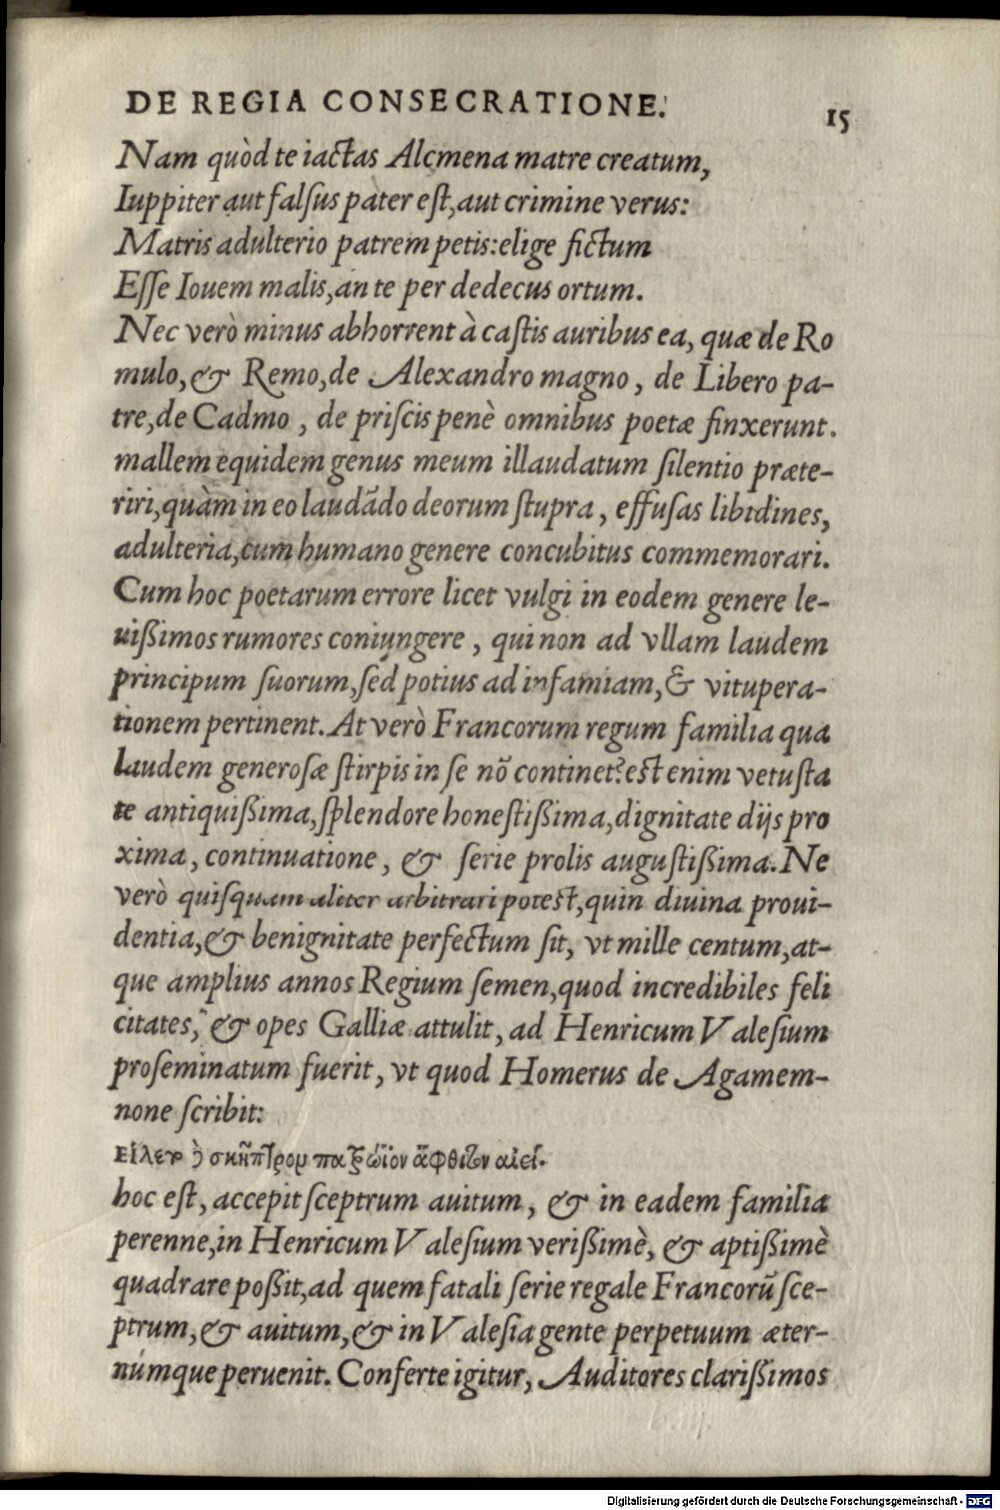 DE REGIA CONSECRATIONE. 15
Nam quòd te iactas Alcmena matre creatum,
Iuppiter aut falſus pater eſt, aut crimine verus:
Matris adulterio patrem petis: elige fictum
Eſſe Iouem malis, an te per dedecus ortum.
Nec verò minus abhorrent à caſtis auribus ea, quæ de Ro
mulo, & Remo, de Alexandro magno, de Libero pa-
tre, de Cadmo, de priſcis penè omnibus poetæ finxerunt.
mallem equidem genus meum illaudatum ſilentio præte-
riri, quàm in eo laudãdo deorum ſtupra, effuſas libidines,
adulteria, cum humano genere concubitus commemorari.
Cum hoc poetarum errore licet vulgi in eodem genere le-
uißimos rumores coniungere, qui non ad vllam laudem
principum ſuorum, ſed potius ad infamiam, & vitupera-
tionem pertinent. At verò Francorum regum familia qua
laudem generoſæ ſtirpis in ſe nõ continet? eſt enim vetuſta
te antiquißima, ſplendore honeſtißima, dignitate dijs pro
xima, continuatione, & ſerie prolis auguſtißima. Ne
verò quiſquam aliter arbitrari poteſt, quin diuina proui-
dentia, & benignitate perfectum ſit, vt mille centum, at-
que amplius annos Regium ſemen, quod incredibiles feli
citates, & opes Galliæ attulit, ad Henricum Valeſium
proſeminatum fuerit, vt quod Homerus de Agamem-
none ſcribit:
σκῆπτρον πατρώϊον ἄφθιτον αἰεί.
hoc eſt, accepit ſceptrum auitum, & in eadem familia
perenne, in Henricum Valeſium verißimè, & aptißimè
quadrare poßit, ad quem fatali ſerie regale Francorũ ſce-
ptrum, & auitum, & in Valeſia gente perpetuum æter-
númque peruenit. Conferte igitur, Auditores clarißimos
Digitalisierung gefördert durch die Deutsche Forschungsgemeinschaft - DFG